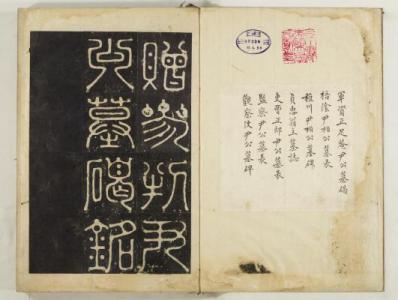 軍資正尹公墓碣
梧陰尹相公墓表
稚川尹相公墓碑
貞惠翁主墓誌
吏曹正郎尹公墓表
監察尹公墓表
觀察使尹公墓碑
贈參判尹
公墓碣銘